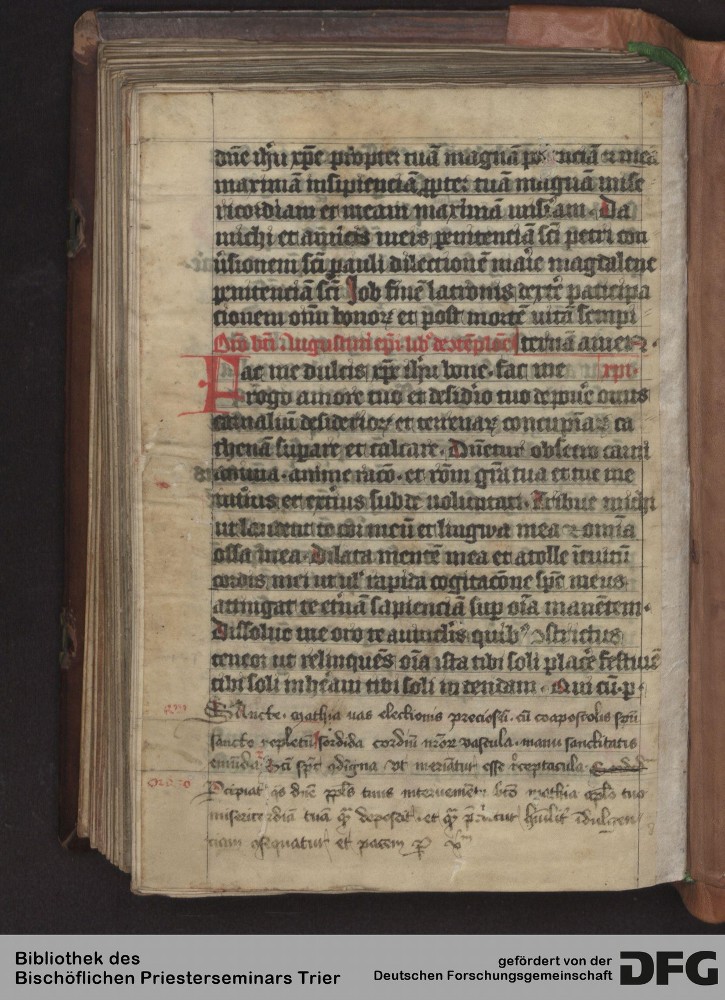 dn̄e ih̄u xp̄e propter tuā magnā et mea
maximā insipienciā ꝓpter tuā magnā mise
ricordiam et meam maximā Da
michi et amicis meis penitenciā sc̄i petri con
uersionem sc̄i pauli dilectionē marie magdalene
penitenciā sc̄i Job finē latronis dextre participa
cionem oīm bonorꝝ et post mortē uitā sempi
Oro bt̄i Augustini ep̄i ternā amen
Fac me dulcis xp̄e ih̄u bone fac me xp̄i
rogo amore tuo et desid'io tuo deponere onus
carnaliū desideriorꝝ et terrenarꝝ concupīaꝝ ca
thenā sup̄are et calcare. obsecro carni
anime racō. et rōni gr̄a tua et tue me
int'ius et ext'ius subde uoluntati. Tribue michi
ut laudent te cor meū et lingwa mea et omīa
ossa mea. Dilata mentē mea et atolle ītuitū
cordis mei ut rapida cogitacōne sp̄c meus
attingat te et'nā sapienciā sup oīa manētem.
Dissolue me oro te a uinclis quibꝰ ꝯstrictus
teneor ut relinquēs oīa ista tibi soli placē festinē
tibi soli inh'eam tibi soli intendam. Qui cū. p.
Sancte mathia uas electionis preciosū. cū coapostolis sp̄u
sancto repletū sordida cordiū nr̄or vascula. manu sanctitatis
emūda ꝯdigna vt meriātur esse receptacula.
oracio
Pcipiat qs dn̄e ppl̄s tuus interueniēte bt̄o mathia apl̄o tuo
misericordiā tuā qm̄ deposcit. et qm̄ humilit' īdulgen
ciam ꝯsequatur et pacem ꝑ
Bibliothek des
Bischöflichen Priesterseminars Trier
gefördert von der
Deutschen Forschungsgemeinschaft
DFG